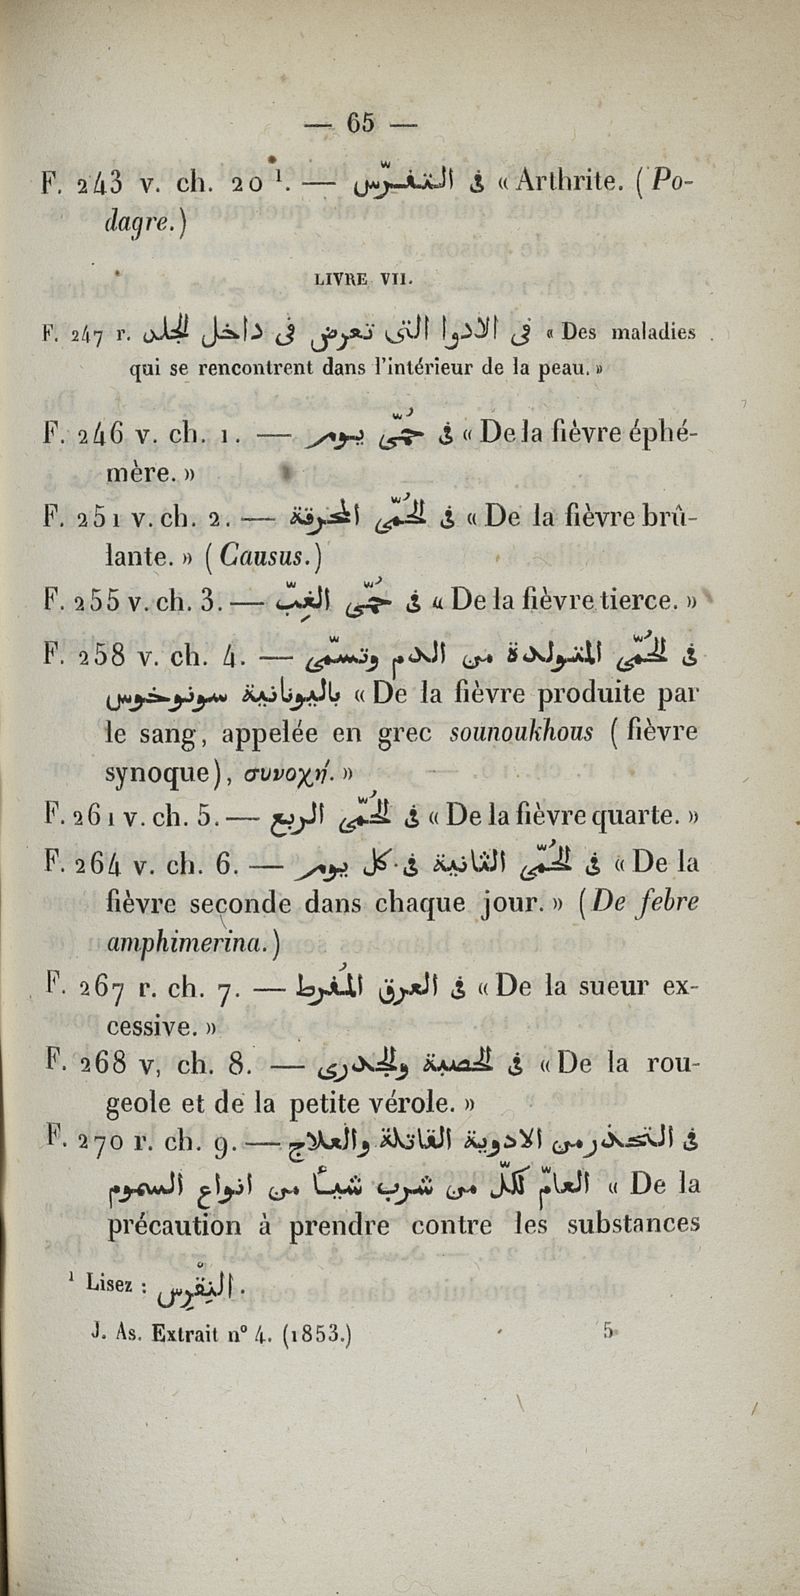 — 65 —
F. 243 v. ch. 20 ¹. — في التفرّس « Arthrite. (Po-
dagre.)
LIVRE VII.
F. 247 r. في الادوا التى تعرض فى داخل الجلد « Des maladies
qui se rencontrent dans l'intérieur de la peau. »
F. 246 v. ch. 1. — في حُمّى يوم « De la fièvre éphé-
mère. »
F. 251 v. ch. 2. — في الحُمّى المحرقة « De la fièvre brû-
lante. » (Causus.)
F. 255 v. ch. 3. — في حُمّى الغِبّ « De la fièvre tierce. »
F. 258 v. ch. 4. — في الحُمّى المتولدة من الدم وتسمّى
باليونانية سونوخوس « De la fièvre produite par
le sang, appelée en grec sounoukhous (fièvre
synoque), συνοχή. »
F. 261 v. ch. 5. — في الحُمّى الربع « De la fièvre quarte. »
F. 264 v. ch. 6. — في الحُمّى الثانية في كل يوم « De la
fièvre seconde dans chaque jour. » (De febre
amphimerina.)
F. 267 r. ch. 7. — في العرق المُفرط « De la sueur ex-
cessive. »
F. 268 v, ch. 8. — في الحصبة والجدرى « De la rou-
geole et de la petite vérole. »
F. 270 r. ch. 9. — في التحذر من الادوية القاتلة والعلاج
العامّ لكلّ من شرب شيئًا من انواع السموم « De la
précaution à prendre contre les substances
¹ Lisez : النِقْرِس.
J. As. Extrait n° 4. (1853.) 5